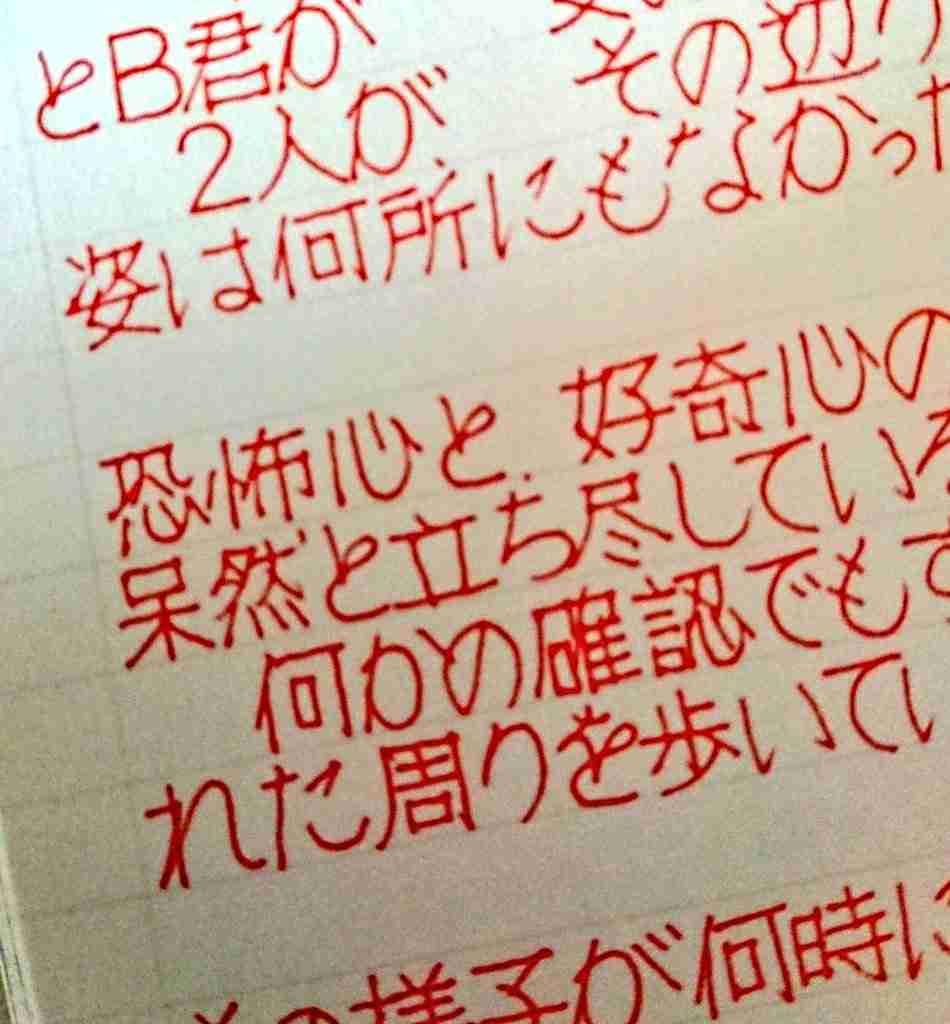 とB君が
2人が その辺り
姿は何所にもなかった
恐怖心と、好奇心の
呆然と立ち尽してい
何かの確認でも
れた周りを歩いてい
の様子が何時に